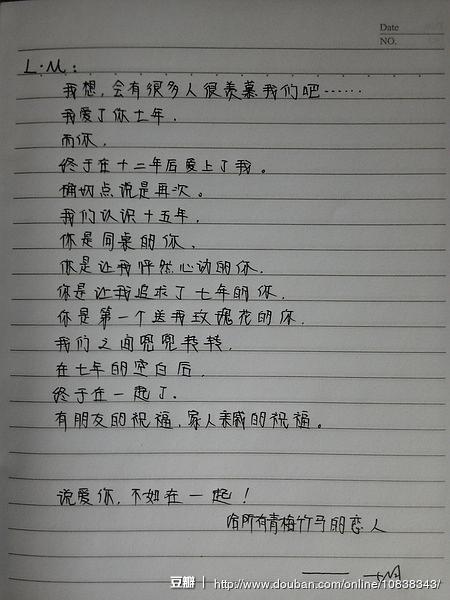 Date
NO.
L·M:
我想,会有很多人很羡慕我们吧……
我爱了你七年,
而你,
终于在十二年后爱上了我。
确切点说是再次。
我们认识十五年,
你是同桌的你,
你是让我怦然心动的你,
你是让我追求了七年的你,
你是第一个送我玫瑰花的你,
我们之间兜兜转转,
在七年的空白后,
终于在一起了,
有朋友的祝福,家人亲戚的祝福。
说爱你,不如在一起!
给所有青梅竹马的恋人
豆瓣 | http://www.douban.com/online/10838343/